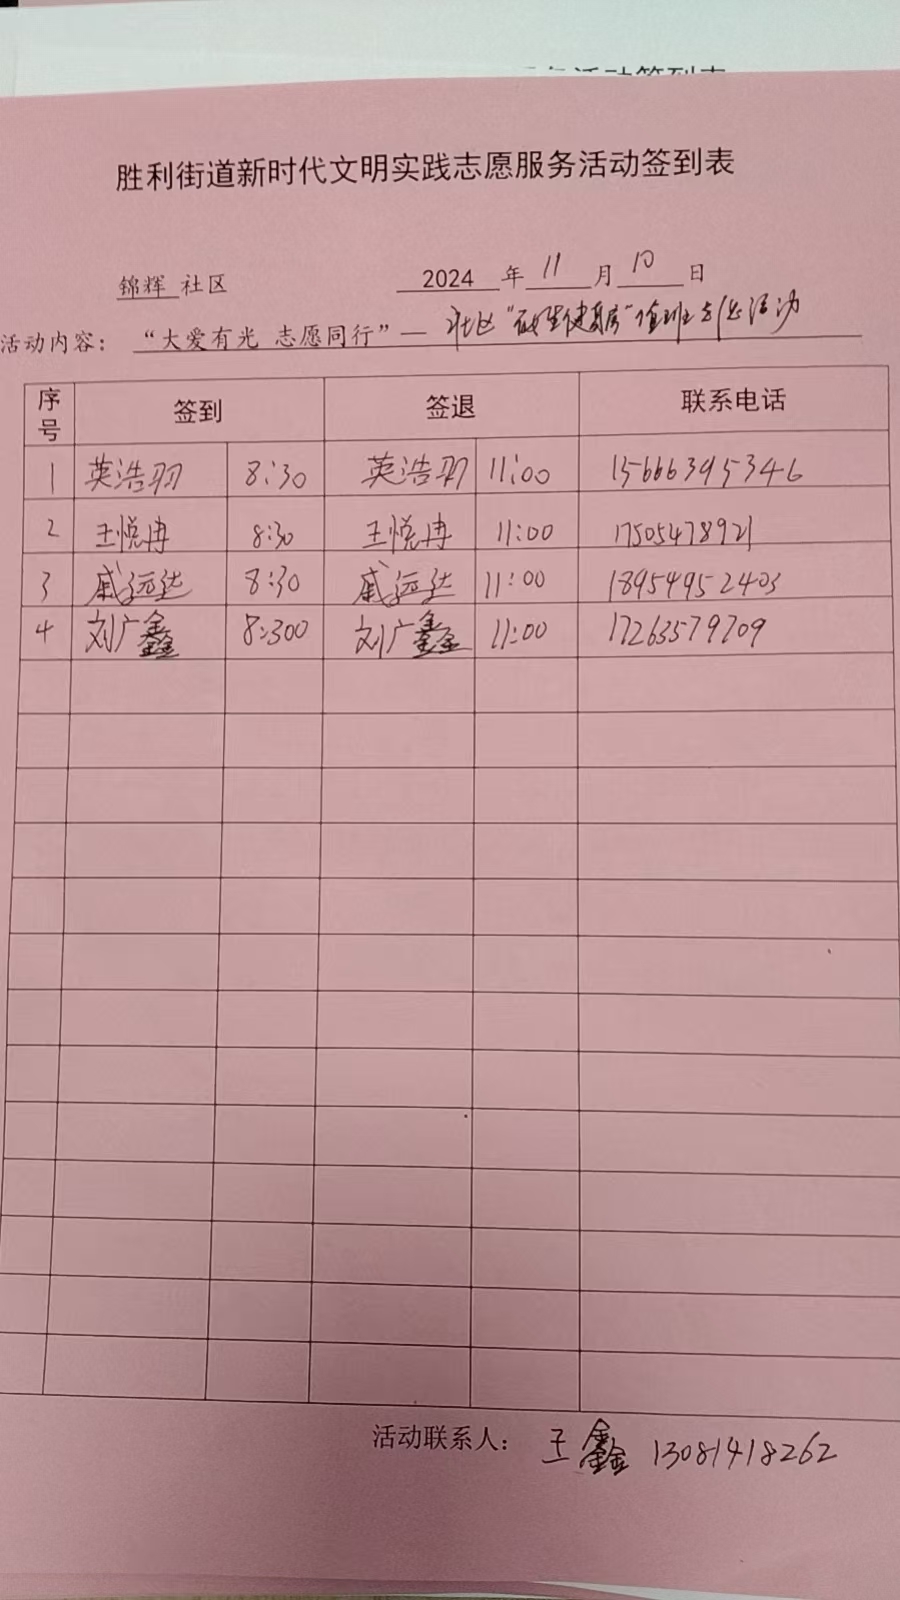 胜利街道新时代文明实践志愿服务活动签到表
锦辉 社区 2024 年 11 月 10 日
活动内容： “大爱有光 志愿同行”— 社区 值班志愿活动
序号 签到 签退 联系电话
1 英浩羽 8:30 英浩羽 11:00 15666395346
2 王悦冉 8:30 王悦冉 11:00 17505478921
3 戚远达 8:30 戚远达 11:00 18954952403
4 刘广鑫 8:300 刘广鑫 11:00 17263579709
活动联系人： 王鑫 13081418262